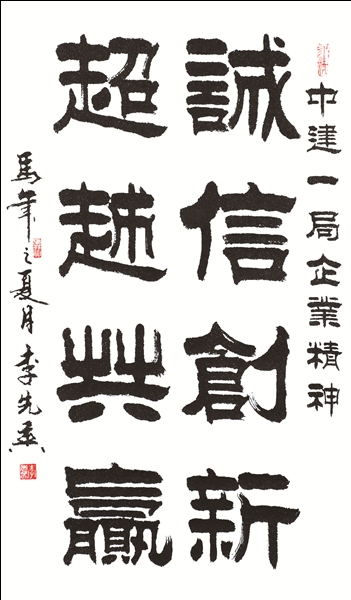 中建一局企業精神
誠信創新
超越共贏
馬年之夏月李先